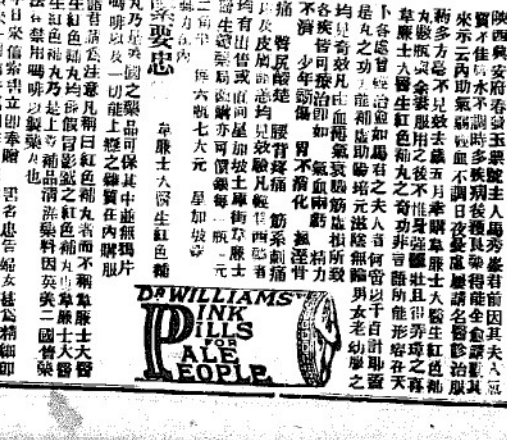 陝西興安府春發玉票號主人馬秀峯君前因其夫人氣
質不佳 水不調時多疾病後獲良藥得能全愈 其
來示云內助氣弱經血不調日夜憂慮屢請名醫診治服
藥多方毫不見效去歲五月幸購韋廉士大醫生紅色補
丸數瓶與余妻服用之後不惟身強體壯且得弄璋之喜
韋廉士大醫生紅色補丸之奇功非言語所能形容在天
下各處曾經治愈如馬君之夫人者何啻以千百計 蓋
是丸之功能補虛助腸培元滋陰無論男女老幼服之
均見奇效凡由血薄氣衰腦筋虛損所致
各疾皆可療治即如 氣血兩虧 精力
不濟 少年斲傷 胃不消化 瘋溼骨
痛 臀尻酸楚 腰背疼痛 筋系刺痛
以及皮膚諸恙均見效驗凡經售西藥者
均有出售或直向星加坡士庫街韋廉士
醫生總藥局函購亦可價銀每一瓶一元
二角半 每六瓶七大元 星加坡
力在內
緊要忠
韋廉士大醫生紅色補
丸乃是英國之藥品可保其中並無鴉片
嗎啡以及一切能上癮之雜質在內購服
諸君請爲注意凡稱曰紅色補丸者而不稱韋廉士大醫
生紅色補丸均係假冒影戤之紅色補丸也韋廉士大醫
生紅色補丸乃是上等補品 藥料因英美二國 藥
法在禁用嗎啡以製藥丸也
日來信索書立即奉贈 書名忠告婦女甚爲精細即
DR WILLIAMS'
PINK
PILLS
FOR
PALE
PEOPLE.